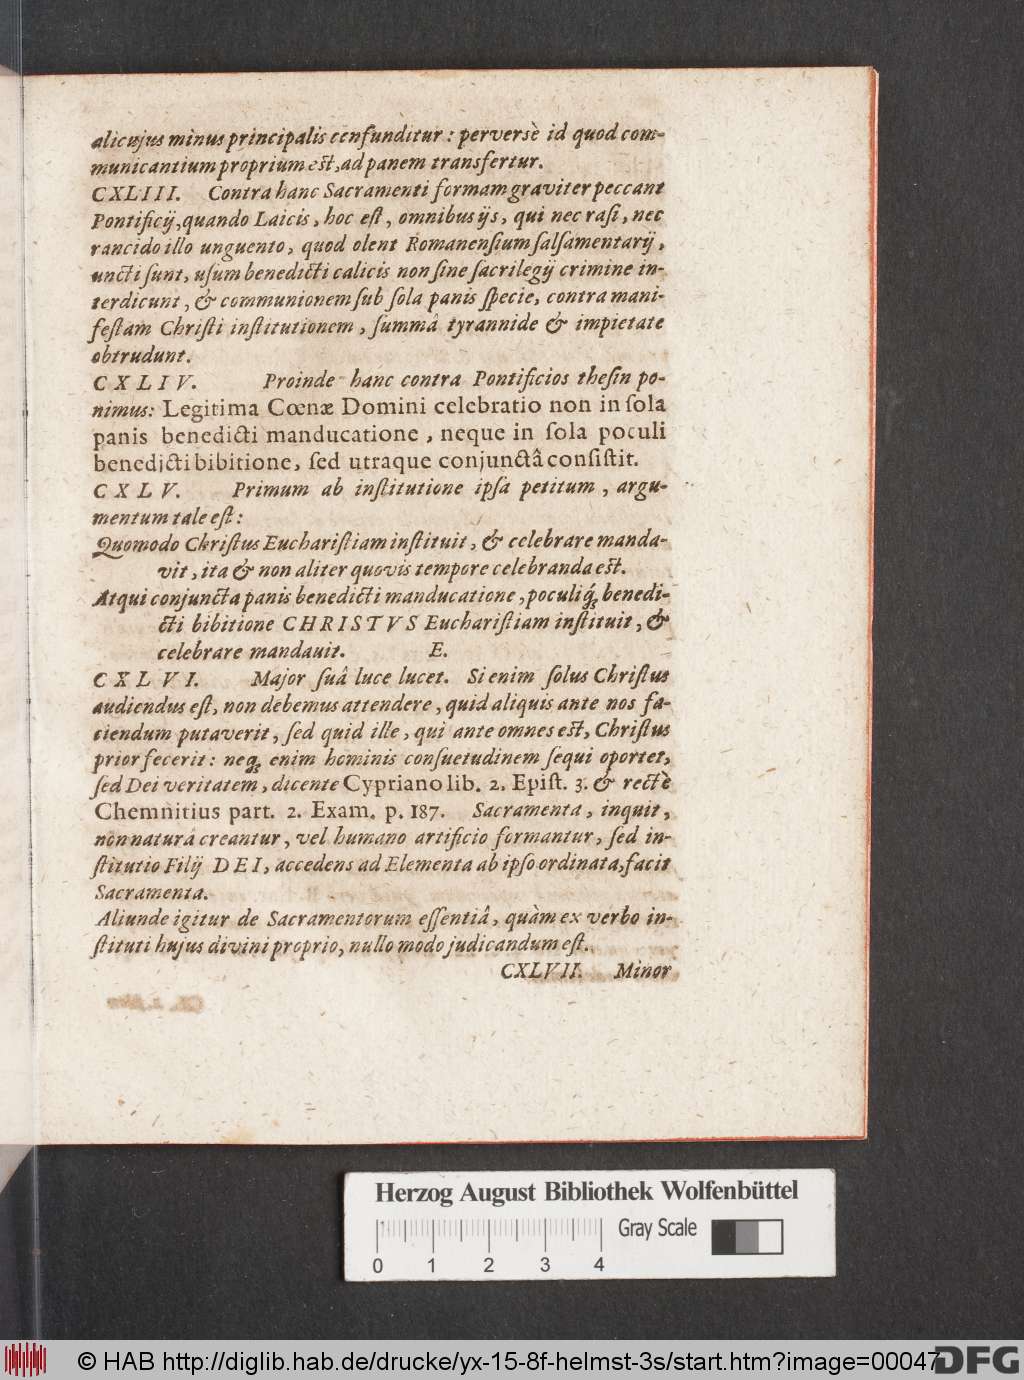 alicujus minus principalis confunditur: perversè id quod com-
municantium proprium est, ad panem transfertur.
CXLIII. Contra hanc Sacramenti formam graviter peccant
Pontificij, quando Laicis, hoc est, omnibus ijs, qui nec rasi, nec
rancido illo unguento, quod olent Romanensium salsamentarij,
uncti sunt, usum benedicti calicis non sine sacrilegij crimine in-
terdicunt, & communionem sub sola panis specie, contra mani-
festam Christi institutionem, summâ tyrannide & impietate
obtrudunt.
CXLIV. Proinde hanc contra Pontificios thesin po-
nimus: Legitima Cœnæ Domini celebratio non in sola
panis benedicti manducatione, neque in sola poculi
benedicti bibitione, sed utraque conjunctâ consistit.
CXLV. Primum ab institutione ipsa petitum, argu-
mentum tale est:
Quomodo Christus Eucharistiam instituit, & celebrare manda-
vit, ita & non aliter quovis tempore celebranda est.
Atqui conjuncta panis benedicti manducatione, poculiq́; benedi-
cti bibitione CHRISTVS Eucharistiam instituit, &
celebrare mandauit. E.
CXLVI. Major suâ luce lucet. Si enim solus Christus
audiendus est, non debemus attendere, quid aliquis ante nos fa-
ciendum putaverit, sed quid ille, qui ante omnes est, Christus
prior fecerit: neq; enim hominis consuetudinem sequi oportet,
sed Dei veritatem, dicente Cypriano lib. 2. Epist. 3. & rectè
Chemnitius part. 2. Exam. p. 187. Sacramenta, inquit,
non naturâ creantur, vel humano artificio formantur, sed in-
stitutio Filij DEI, accedens ad Elementa ab ipso ordinata, facit
Sacramenta.
Aliunde igitur de Sacramentorum essentiâ, quàm ex verbo in-
stituti hujus divini proprio, nullo modo judicandum est.
CXLVII. Minor
Herzog August Bibliothek Wolfenbüttel
Gray Scale
0 1 2 3 4
© HAB http://diglib.hab.de/drucke/yx-15-8f-helmst-3s/start.htm?image=00047
DFG